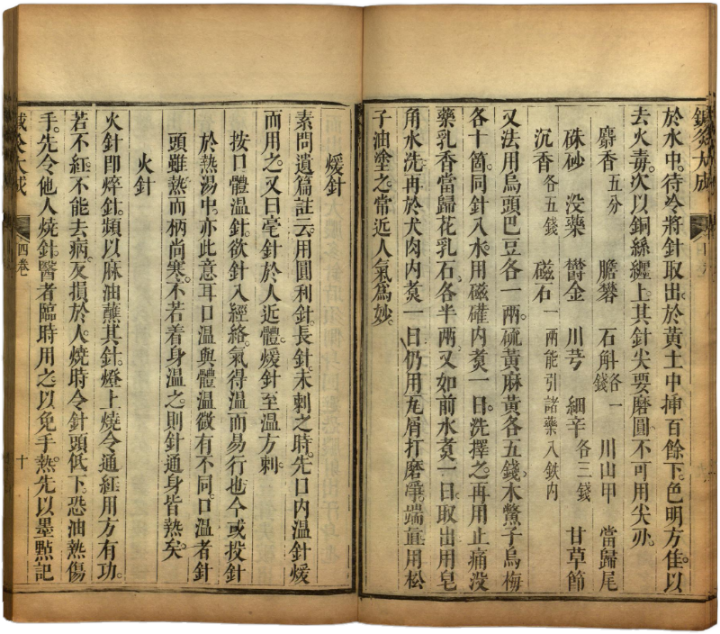 鍼灸大成
於水中。待冷將針取出。於黃土中揷百餘下。色明方佳。以
去火毒。次以銅絲纏上。其針尖要磨圓。不可用尖刃。
麝香五分　膽礬　石斛各一錢　川山甲　當歸尾
硃砂　没藥　欝金　川芎　細辛各三錢　甘草節
沉香各五錢　磁石一兩能引諸藥入鉄内
又法用烏頭巴豆各一兩。硫黃麻黃各五錢。木鱉子烏梅
各十箇。同針入水。用磁礶内煑一日。洗擇之。再用止痛没
藥乳香當歸花乳石各半兩。又如前水煑一日。取出用皂
角水洗。再於犬肉内煑一日。仍用瓦屑打磨凈。端直。用松
子油塗之。常近人氣爲妙。
煖針
素問遺篇註云。用圓利針長針。未刺之時。先口内温針。煖
而用之。又曰。毫針於人近體。煖針至温方刺。
按口體温針。欲針入經絡。氣得温而易行也。今或投針
於熱湯中。亦此意耳。口温與體温微有不同。口温者針
頭雖熱而柄尚寒。不若着身温之。則針通身皆熱矣。
火針
火針卽焠針。頻以麻油蘸其針。燈上燒令通紅。用方有功。
若不紅。不能去病。反損於人。燒時令針頭低下。恐油熱傷
手。先令他人燒針。醫者臨時用之。以免手熱。先以墨㸃記
鍼灸大成　四卷　十